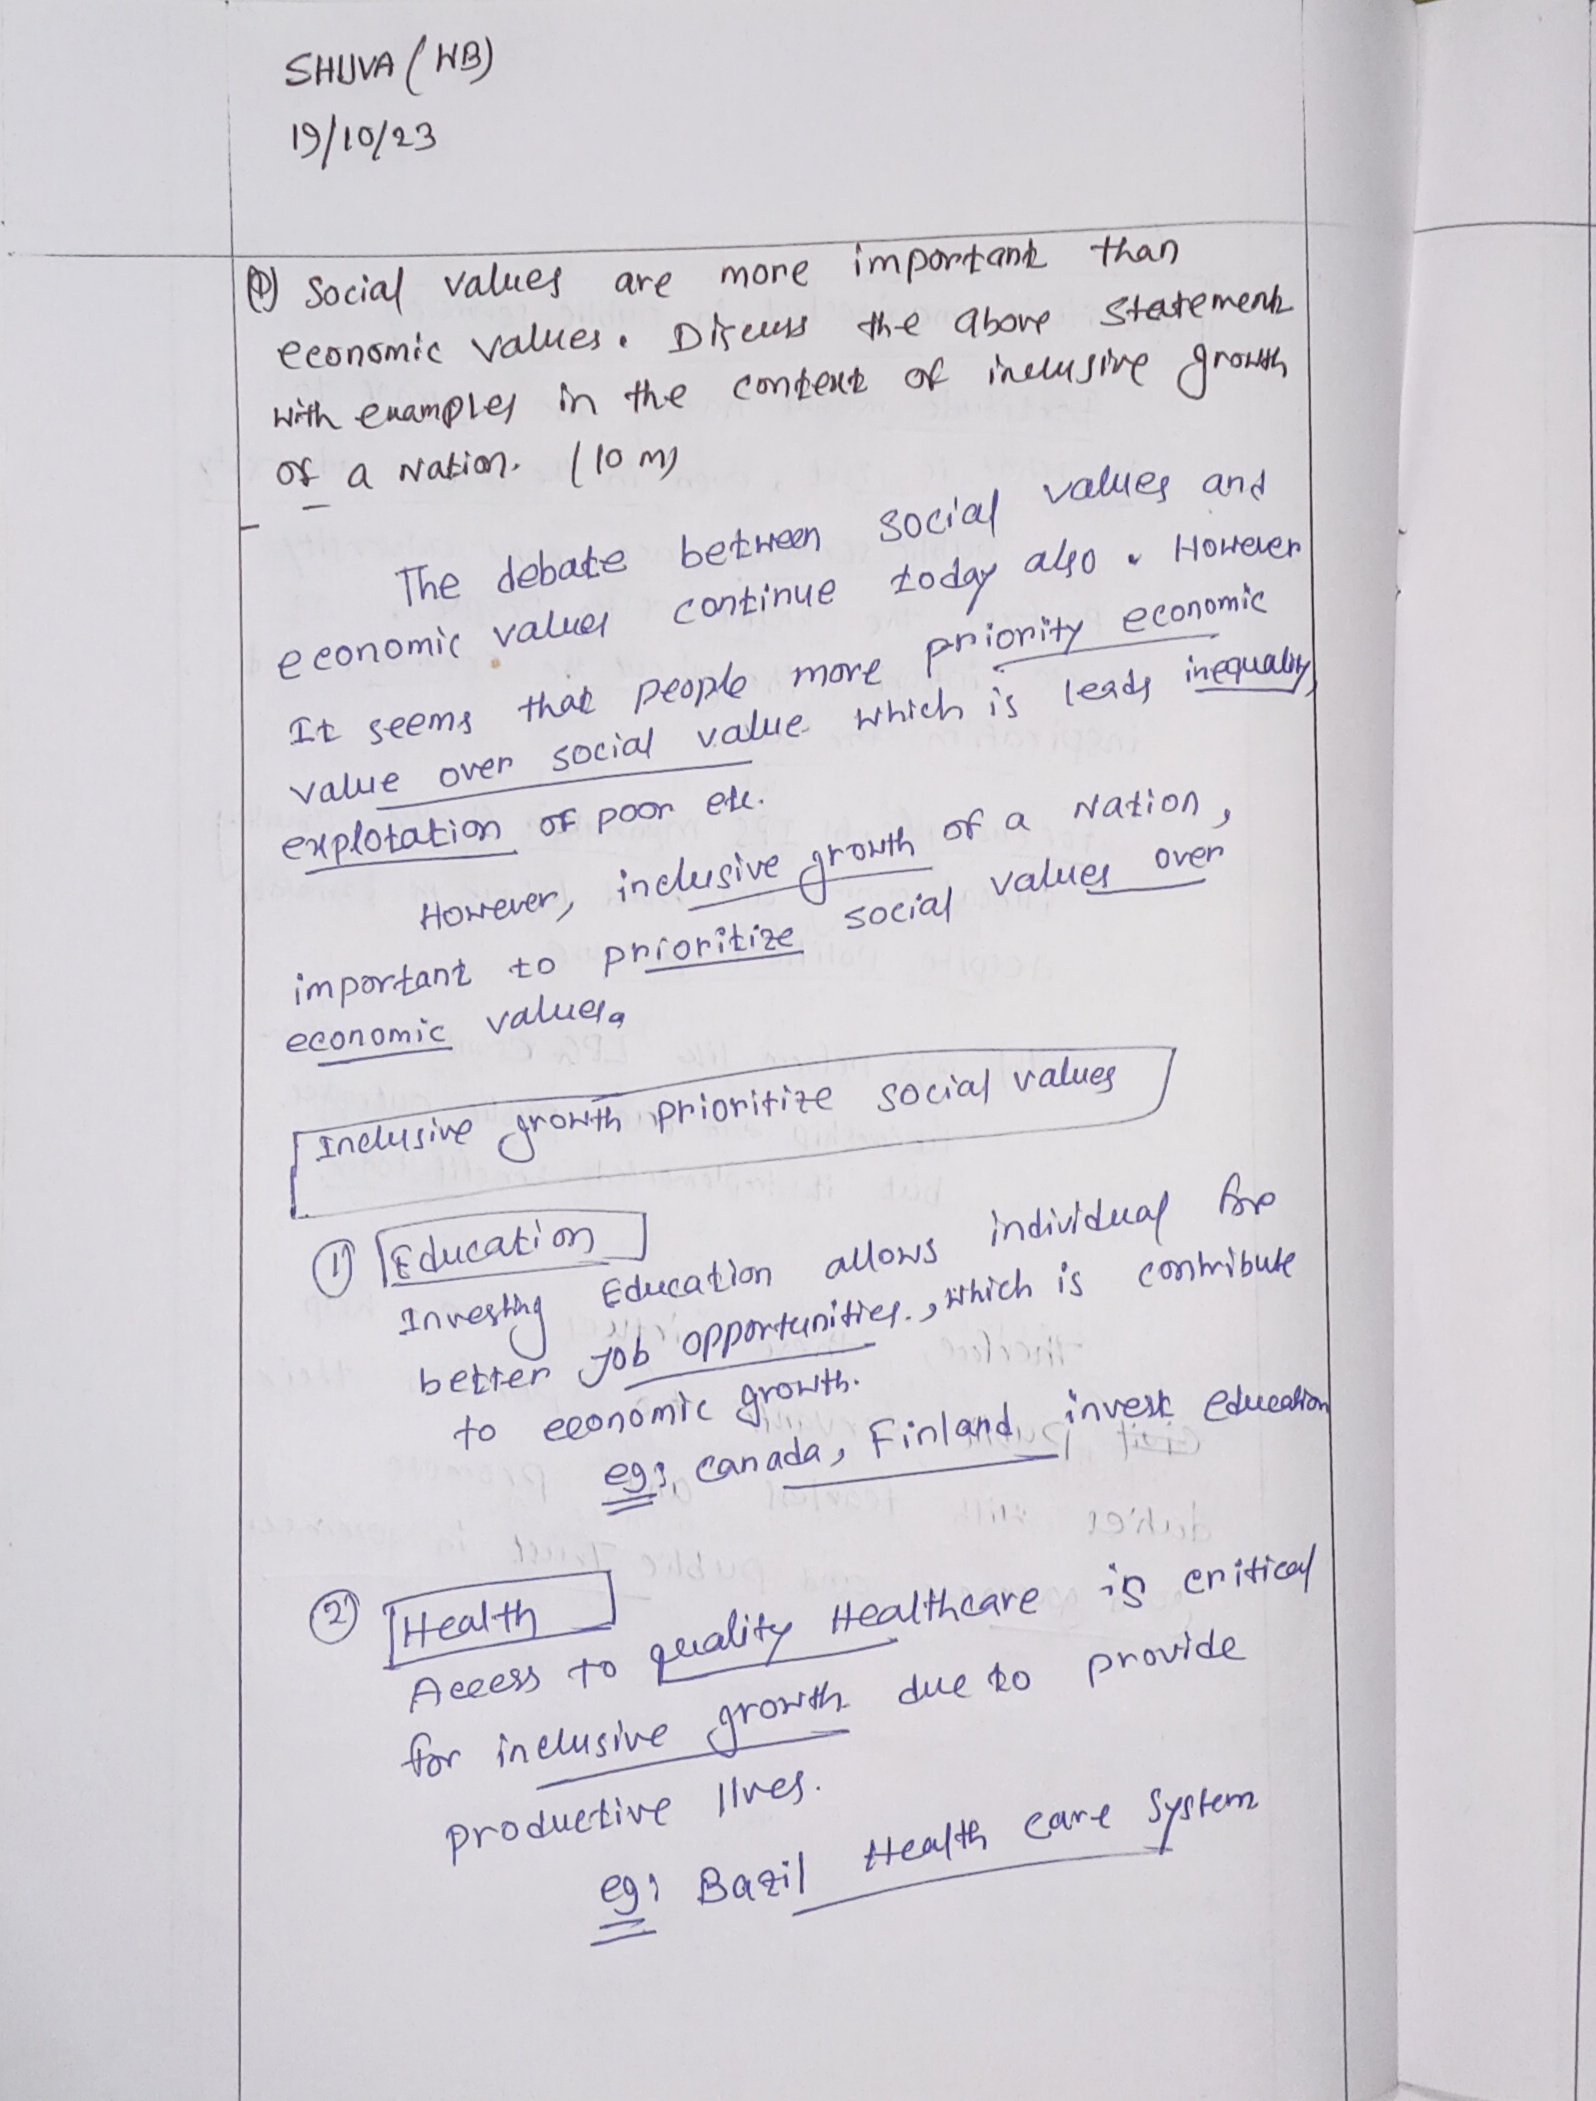 SHUVA (WB)
19/10/23
Q) Social values are more important than
economic values. Discuss the above statement
with examples in the context of inclusive growth
of a Nation. (10 m)
The debate between social values and
economic values continue today also. However
It seems that people more priority economic
value over social value which is leads inequality,
explotation of poor etc.
However, inclusive growth of a Nation,
important to prioritize social values over
economic values.
Inclusive growth prioritize social values
1) Education
Investing Education allows individual for
better job opportunities, which is contribute
to economic growth.
eg: Canada, Finland invest education
2) Health
Access to quality Healthcare is critical
for inclusive growth due to provide
productive lives.
eg: Bazil Health care system